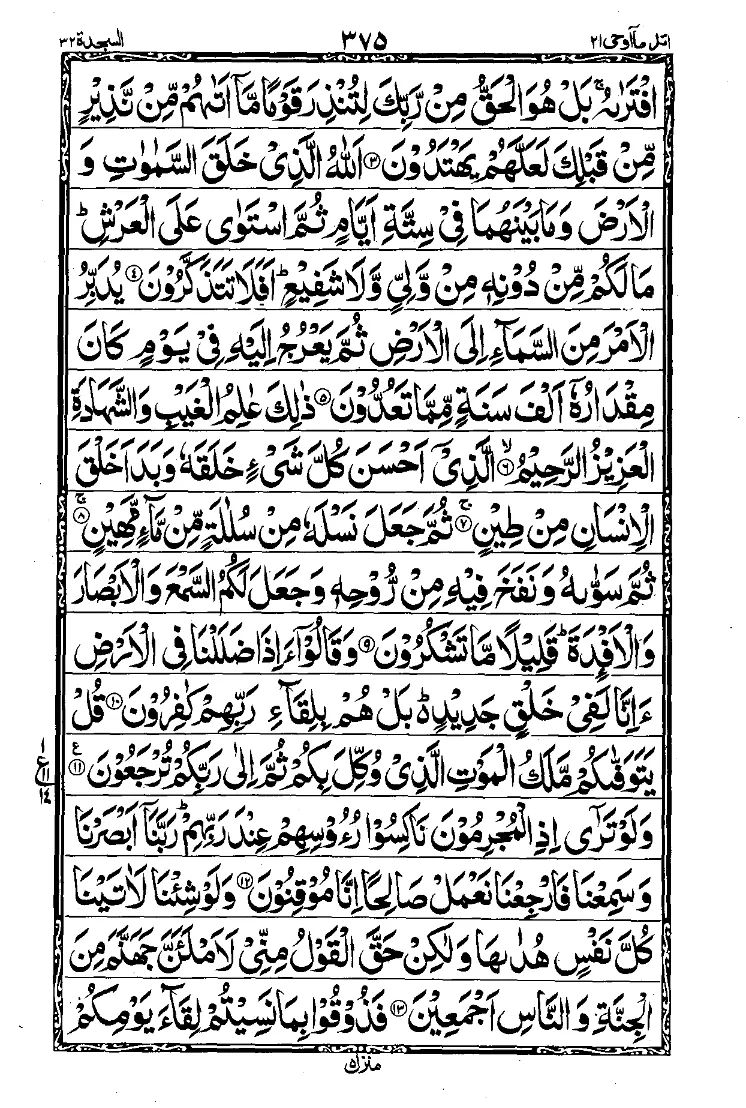 اتل مآاوحی ۲۱ ۳۷۵ السجدة ۳۲
افْتَرٰىهُ ۚ بَلْ هُوَ الْحَقُّ مِنْ رَّبِّكَ لِتُنْذِرَ قَوْمًا مَّاۤ اَتٰىهُمْ مِّنْ نَّذِيْرٍ
مِّنْ قَبْلِكَ لَعَلَّهُمْ يَهْتَدُوْنَ ۝۳ اَللّٰهُ الَّذِيْ خَلَقَ السَّمٰوٰتِ وَ
الْاَرْضَ وَمَا بَيْنَهُمَا فِيْ سِتَّةِ اَيَّامٍ ثُمَّ اسْتَوٰى عَلَى الْعَرْشِ ؕ
مَا لَكُمْ مِّنْ دُوْنِهٖ مِنْ وَّلِيٍّ وَّلَا شَفِيْعٍ ؕ اَفَلَا تَتَذَكَّرُوْنَ ۝۴ يُدَبِّرُ
الْاَمْرَ مِنَ السَّمَآءِ اِلَى الْاَرْضِ ثُمَّ يَعْرُجُ اِلَيْهِ فِيْ يَوْمٍ كَانَ
مِقْدَارُهٗۤ اَلْفَ سَنَةٍ مِّمَّا تَعُدُّوْنَ ۝۵ ذٰلِكَ عٰلِمُ الْغَيْبِ وَالشَّهَادَةِ
الْعَزِيْزُ الرَّحِيْمُ ۝۶ۙ الَّذِيْۤ اَحْسَنَ كُلَّ شَيْءٍ خَلَقَهٗ وَبَدَاَ خَلْقَ
الْاِنْسَانِ مِنْ طِيْنٍ ۝۷ۚ ثُمَّ جَعَلَ نَسْلَهٗ مِنْ سُلٰلَةٍ مِّنْ مَّآءٍ مَّهِيْنٍ ۝۸ۚ
ثُمَّ سَوّٰىهُ وَنَفَخَ فِيْهِ مِنْ رُّوْحِهٖ وَجَعَلَ لَكُمُ السَّمْعَ وَالْاَبْصَارَ
وَالْاَفْـِٕدَةَ ؕ قَلِيْلًا مَّا تَشْكُرُوْنَ ۝۹ وَقَالُوْۤا ءَاِذَا ضَلَلْنَا فِي الْاَرْضِ
ءَاِنَّا لَفِيْ خَلْقٍ جَدِيْدٍ ؕ۬ بَلْ هُمْ بِلِقَآءِ رَبِّهِمْ كٰفِرُوْنَ ۝۱۰ قُلْ
يَتَوَفّٰىكُمْ مَّلَكُ الْمَوْتِ الَّذِيْ وُكِّلَ بِكُمْ ثُمَّ اِلٰى رَبِّكُمْ تُرْجَعُوْنَ ۝۱۱ ع
۱ ع ۱۱ ۱۴
وَلَوْ تَرٰۤى اِذِ الْمُجْرِمُوْنَ نَاكِسُوْا رُءُوْسِهِمْ عِنْدَ رَبِّهِمْ ؕ رَبَّنَاۤ اَبْصَرْنَا
وَسَمِعْنَا فَارْجِعْنَا نَعْمَلْ صَالِحًا اِنَّا مُوْقِنُوْنَ ۝۱۲ وَلَوْ شِئْنَا لَاٰتَيْنَا
كُلَّ نَفْسٍ هُدٰىهَا وَلٰكِنْ حَقَّ الْقَوْلُ مِنِّيْ لَاَمْلَـَٔنَّ جَهَنَّمَ مِنَ
الْجِنَّةِ وَالنَّاسِ اَجْمَعِيْنَ ۝۱۳ فَذُوْقُوْا بِمَا نَسِيْتُمْ لِقَآءَ يَوْمِكُمْ
منزل ۵